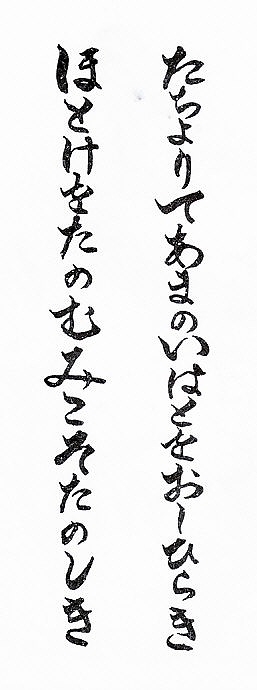 たちよりてあまのいはとをおしひらき
ほとけをたのむみこそたのしき